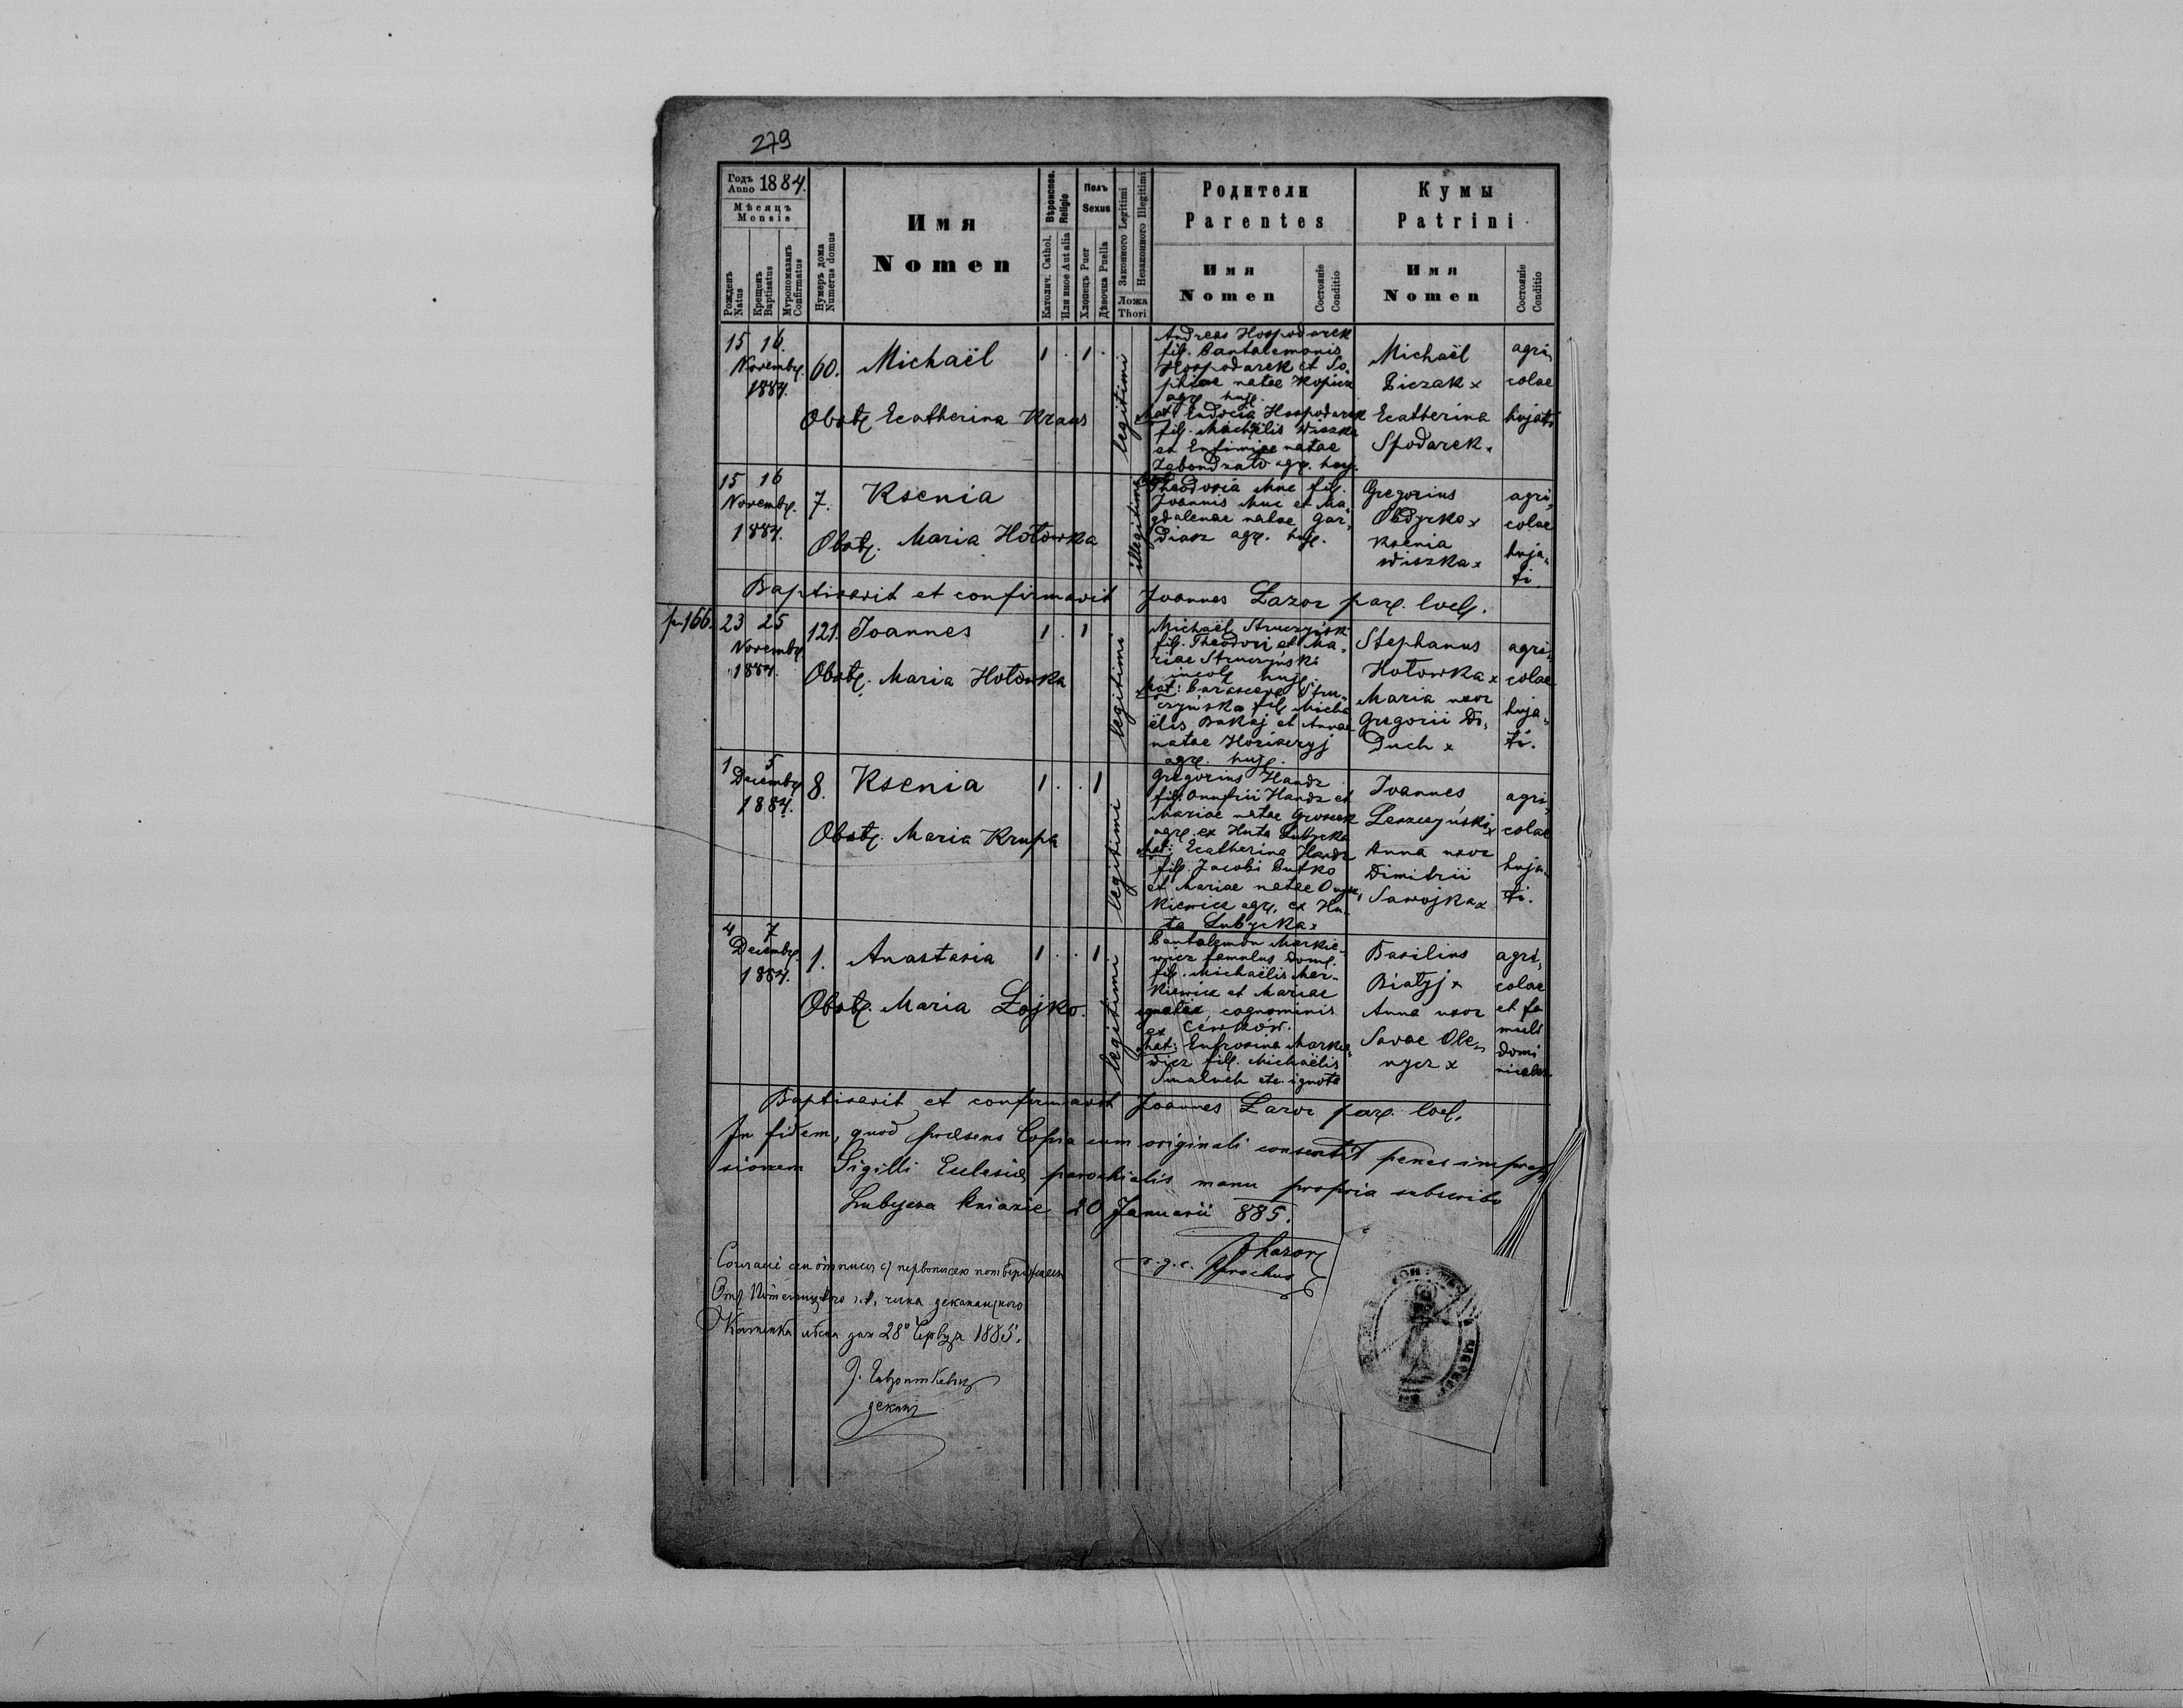 279
Годъ Anno 1884.
Мѣсяць
Mensis
Рожденъ Natus
Крещенъ Baptisatus
Мѵропомазанъ Confirmatus
Нумеръ дома Numerus domus
Имя
Nomen
Вѣроиспов. Religio
Католич. Cathol.
Или иное Aut alia
Полъ
Sexus
Хлопецъ Puer
Дѣвочка Puella
Законного Legitimi
Незаконного Illegitimi
Ложа
Thori
Родители
Parentes
Имя
Nomen
Состояніе
Conditio
Кумы
Patrini
Имя
Nomen
Состояніе
Conditio
15 16.
Novembr.
1884.
60.
Michaël
1 . 1 .
Obstr. Ecatherina Kraus
legitimi
Andreas Hospodarek
fil. Pantalemonis
Hospodarek et So-
phiae natae Kopicz
agr. huj.
Mat. Eudocia Hospodarek
fil. Michaëlis Wiszka
et Eufimiae natae
agr. huj.
Michaël
Piczak x
Ecatherina
Spodarek x
agri-
colae
hujati
15 16
Novembr.
1884.
7.
Ksenia
Obstr. Maria Hołowka
illegitimi
Theodosia Muc fil.
Joannis Muc et Ma-
gdalenae natae Gar-
diasz agr. huj.
Gregorius
Obdyrko x
Ksenia
Wiszka x
agri-
colae
huja-
ti.
Baptisavit et confirmavit Joannes Lazor par. loci.
p. 166.
23 25
Novembr.
1884.
121.
Joannes
1 . 1
Obstr. Maria Hołowka
legitimi
Michaël Struczyński
fil. Theodori et Ma-
riae Struczyński
incolae huj.
Mat: Parasceva Stru-
czyńska fil. Micha-
ëlis Bakaj et Annae
natae
agr. huj.
Stephanus
Hołowka x
Maria uxor
Gregorii Di-
duch x
agri-
colae
huja-
ti.
1 5
Decembr.
1884.
8.
Ksenia
1 . . 1
Obstr. Maria Krupa
legitimi
Gregorius Handz
fil. Onufrii Handz et
Mariae natae Groszek
agr. ex Huta Lubycka
Mat: Ecatherina Handz
fil. Jacobi Butko
et Mariae natae
agr. ex Hu-
ta Lubycka x
Joannes
Leszczyński x
Anna uxor
Dimitrii
Sawojka x
agri-
colae
huja-
ti.
4 7
Decembr.
1884.
1.
Anastasia
1 . . 1
Obstr. Maria Łojko.
legitimi
Pantalemon Markie-
wicz famulus dom.
fil. Michaëlis Mar-
kiewicz et Mariae
ignotae cognominis
ex Cewków.
Mat: Eufrosina Markie-
wicz fil. Michaëlis
Smaluch etc. ignota
Basilius
Białyj x
Anna uxor
Savae Ole-
nycz x
agri-
colae
et fa
muli
domi
nicales
Baptisavit et confirmavit Joannes Lazor par. loci.
In fidem, quod praesens Copia cum originali consentit penes impres-
sionem Sigilli Ecclesiae parochialis manu propria subscribo
Lubycza Kniazie 20 Januarii 885.
J Lazor
r. g. c. Parochus
28
1885.
деканъ